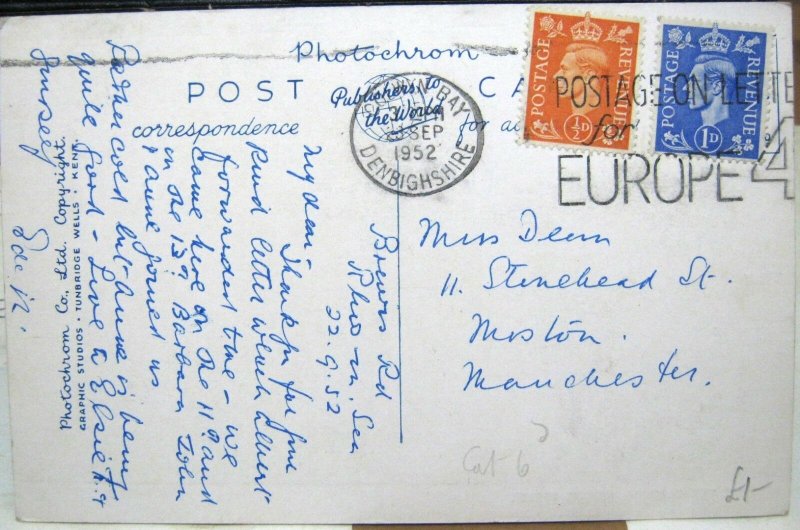 Photochrom
POST CARD
Publishers to
the World
correspondence
COLWYN BAY
SEP
1952
DENBIGHSHIRE
POSTAGE REVENUE
½D
POSTAGE REVENUE
1D
POSTAGE ON LETTE
for
EUROPE 4
Photochrom Co., Ltd. Copyright.
GRAPHIC STUDIOS · TUNBRIDGE WELLS · KENT.
Brewis Rd
Rhos-on-Sea
22.9.52
My dear
Thanks for your
kind letter which Albert
forwarded to me - we
came here on the 11th and
on the 13th Barbara John
& Anne joined us
Rather cold but Anne is being
quite good - Love to Elsie M. &
yourself
Miss Deern
11. Stonehead St.
Moston.
Manchester.
Cat 6
£1-